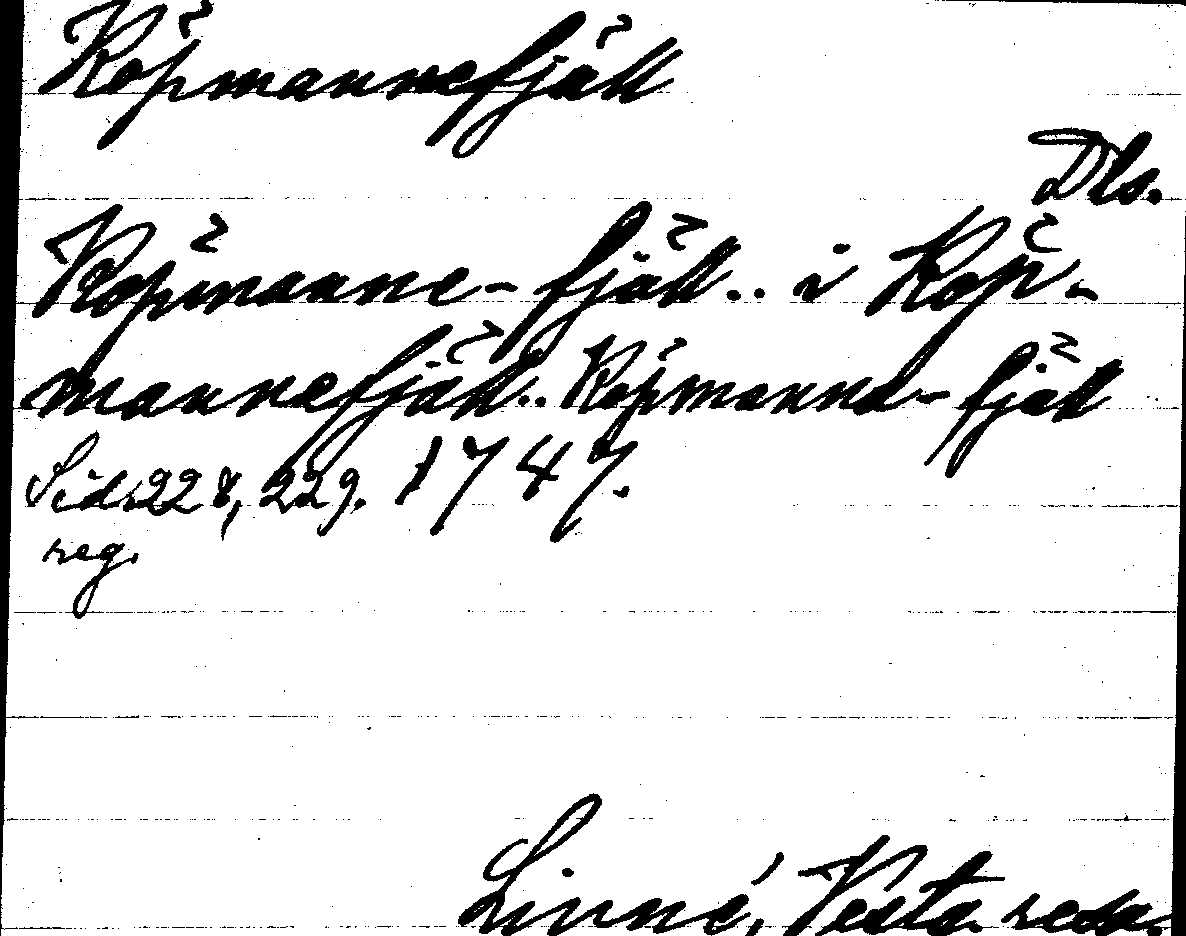 Köpmannefjäll
Dls.
Köpmanne-fjäll.. i Köp-
mannefjäll.. Köpmanne-fjäll
Sid. 228, 229. 1747.
reg.
Linné, Västg. resa.